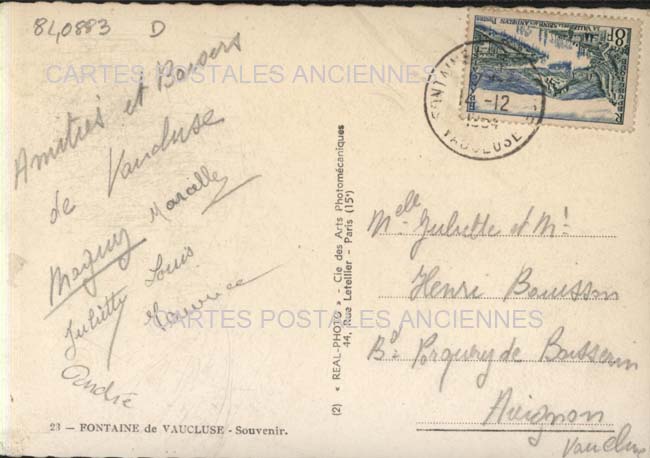 840883 D
CARTES POSTALES ANCIENNES
Amitiés et Baisers
de Vaucluse
Maguy Marcelle
Juliette Louis
Maurice
André
CARTES POSTALES ANCIENNES
23 — FONTAINE de VAUCLUSE - Souvenir.
(2) « REAL-PHOTO » - Cie des Arts Photomécaniques
44, Rue Letellier - Paris (15e)
8F
-12
VAUCLUSE
Melle Juliette et Mr
Henri Bouisson
Bd
Avignon
Vaucluse